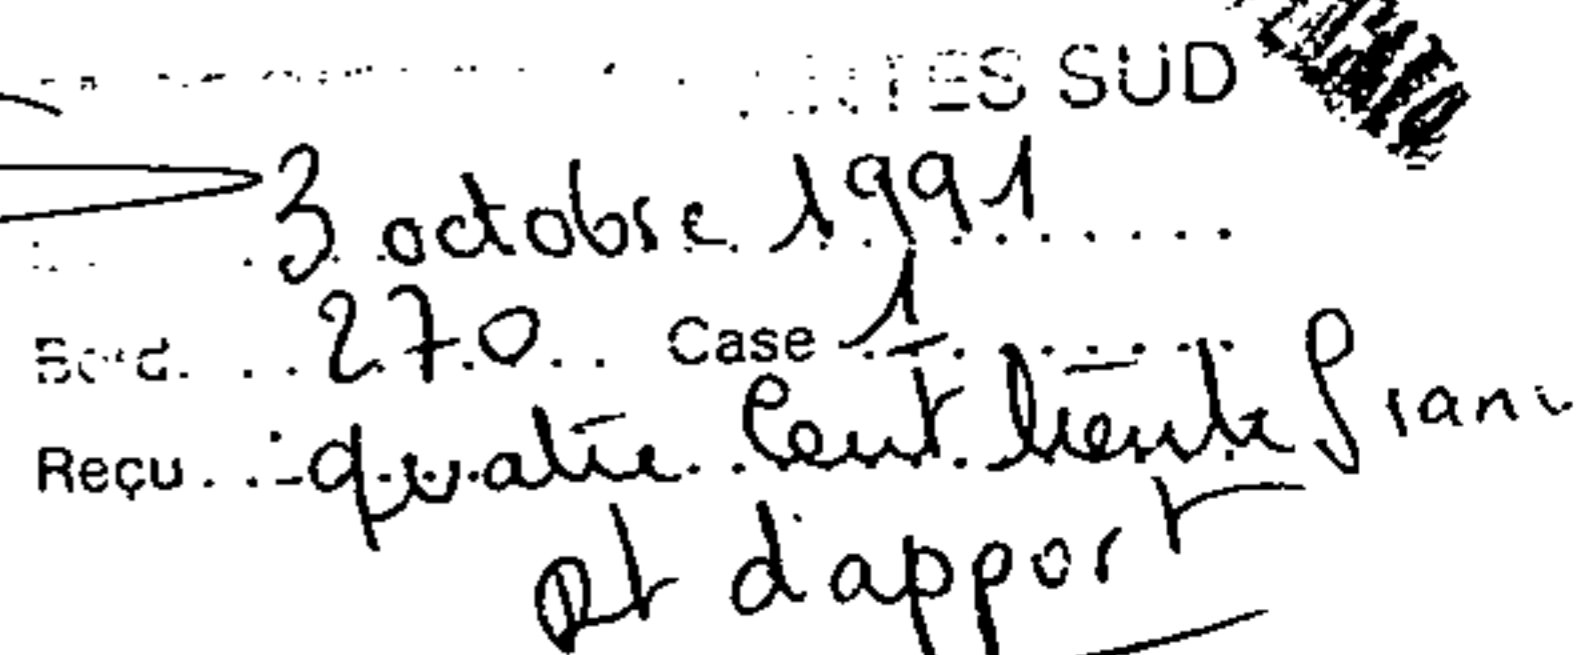 SUD
3 octobre 1991
Bord. 270 Case 1
Reçu quatre Cent trente Franc
Dt d'apport